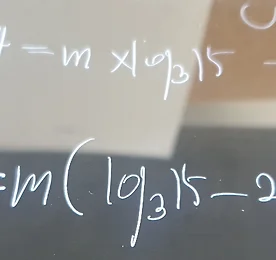 = m × log₃15 -
= m ( log₃15 - 2